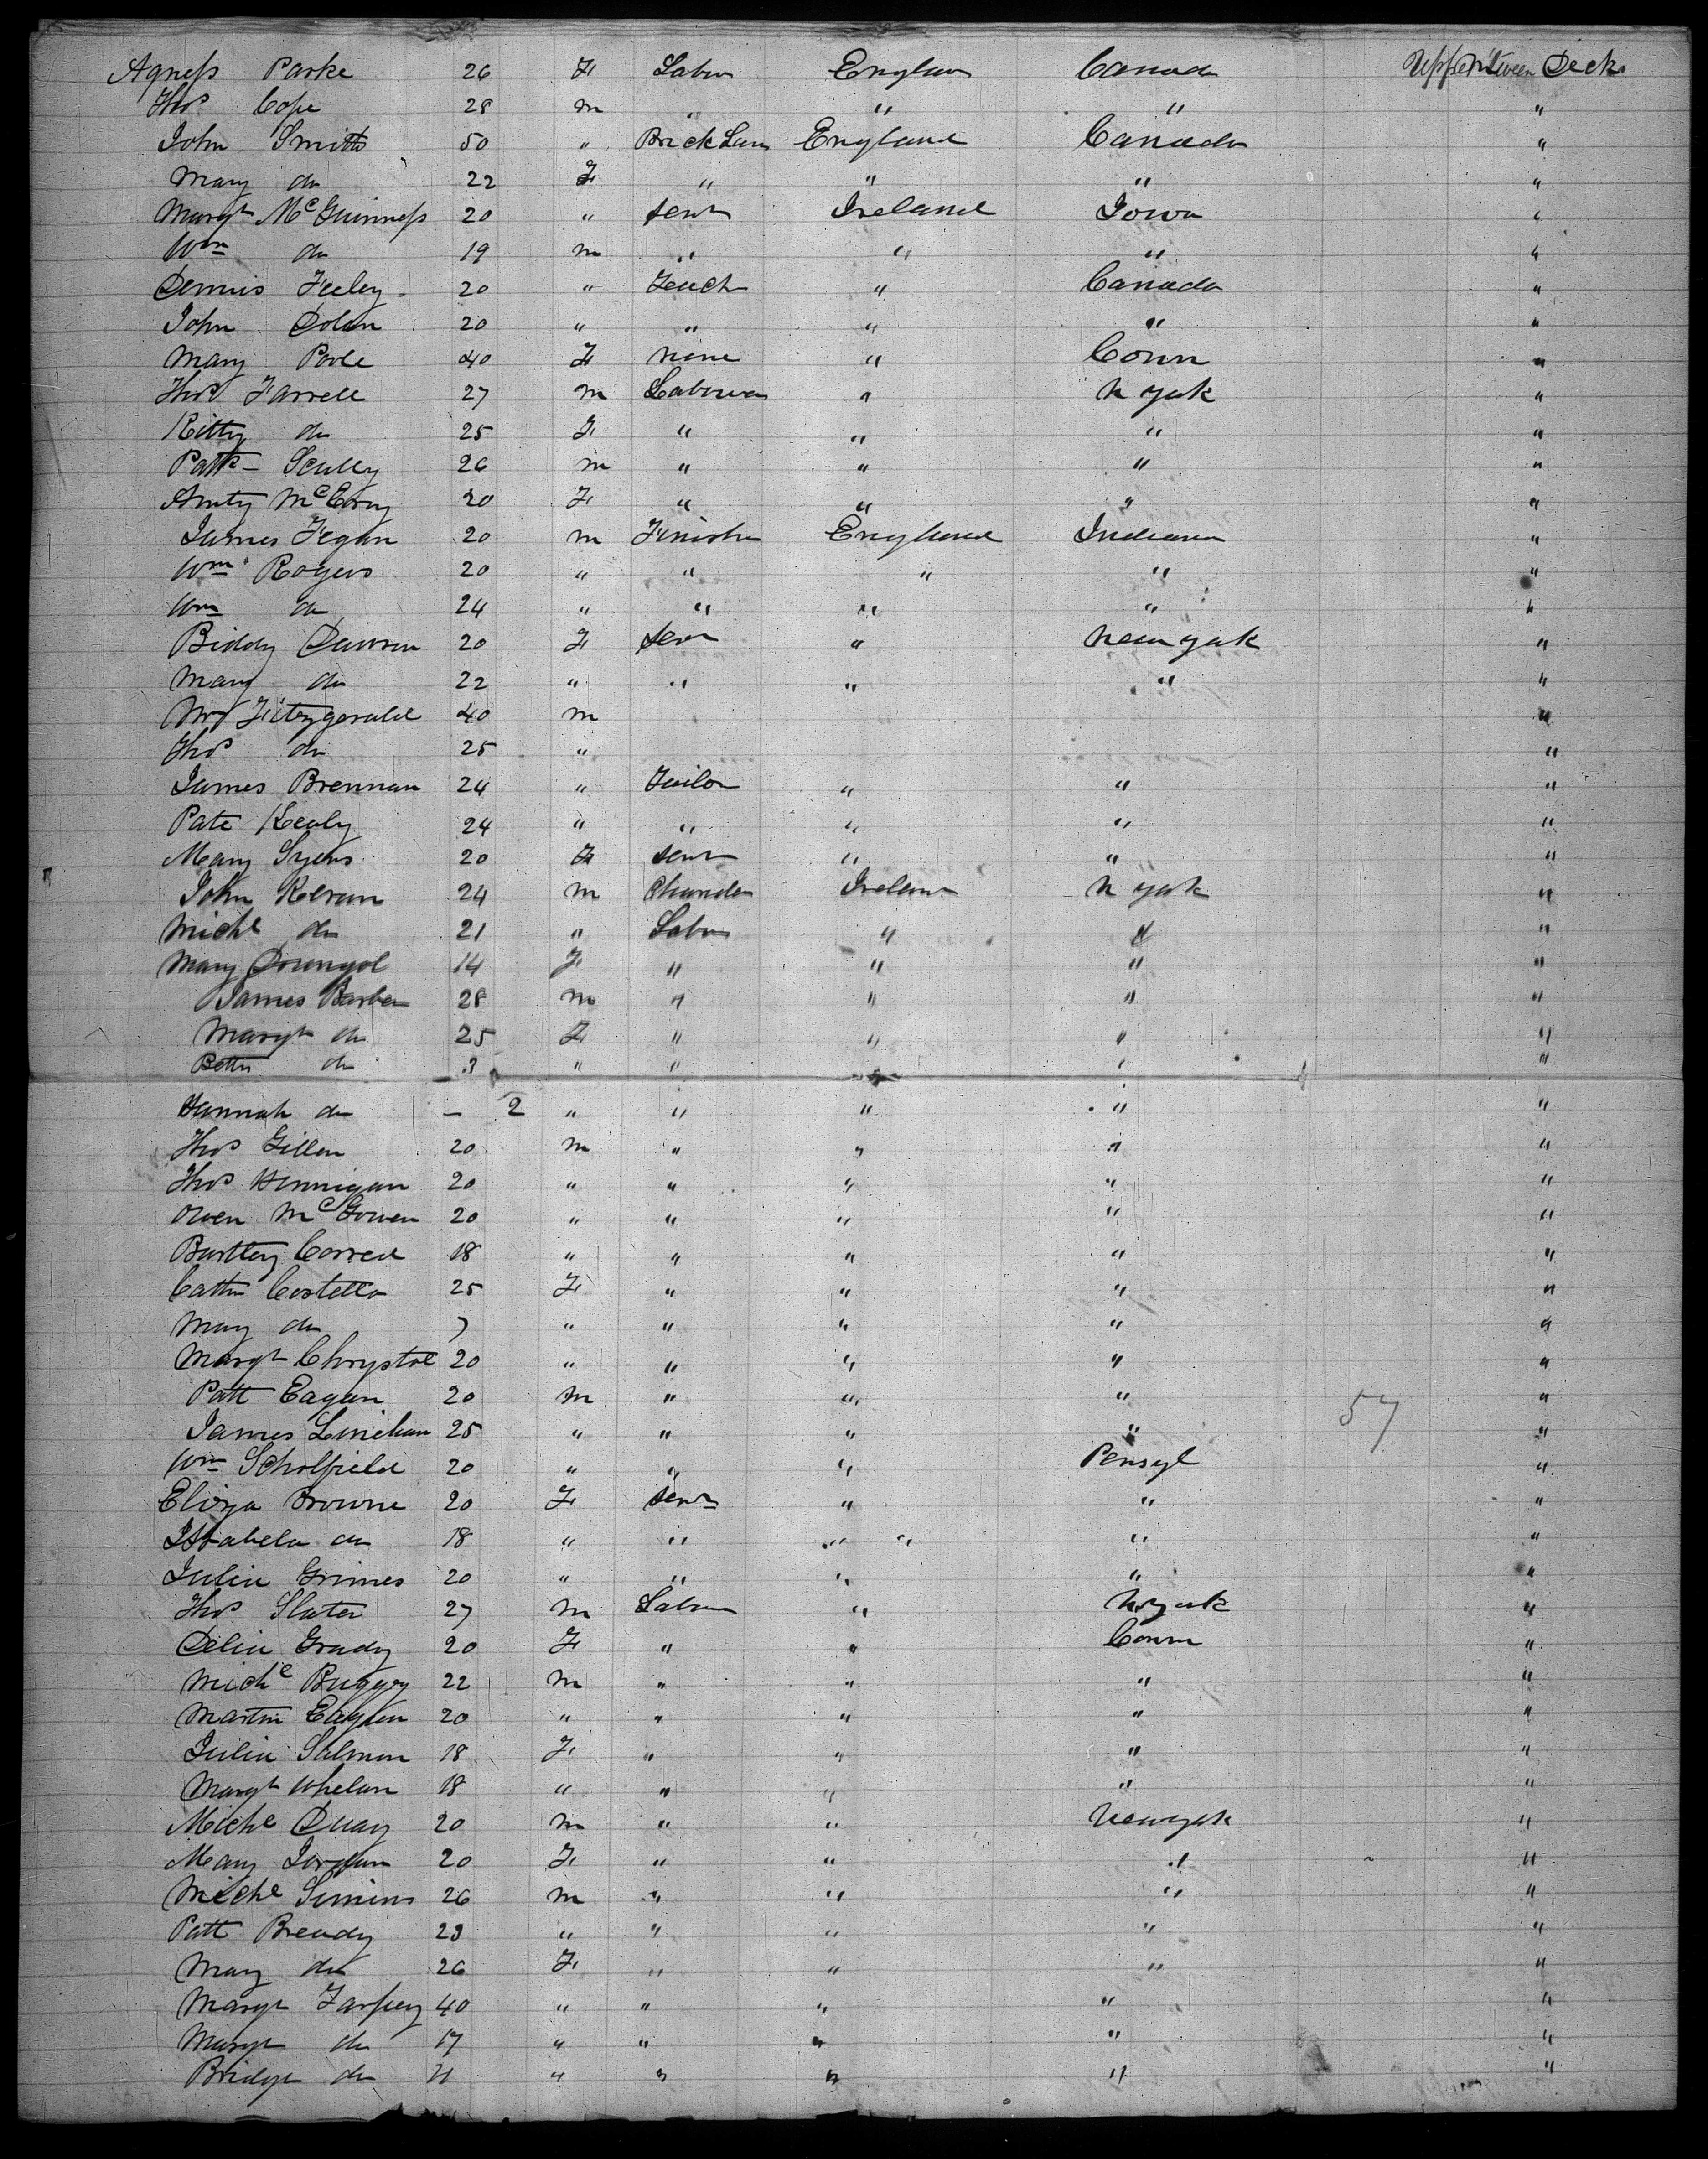 Agness Parke 26 F Labor England Canada Upper 'tween Decks
Thos Cope 28 m " " " "
John Smith 50 " Brick Lam England Canada "
Mary do 22 F " " " "
Margt McGuinness 20 " Servt Ireland Iowa "
Wm do 19 m " " " "
Dennis Feeley 20 " Teach " Canada "
John Dolan 20 " " " " "
Mary Poole 40 F none " Conn "
Thos Farrell 27 m Labourer " N York "
Kitty do 25 F " " " "
Patk Scully 26 m " " " "
20 F " " " "
James Fegan 20 m Finisher England Indiana "
Wm Rogers 20 " " " " "
Wm do 24 " " " " "
Biddy Dawson 20 F Serv " New York "
Mary do 22 " " " " "
Fitzgerald 40 m "
Thos do 25 " "
James Brennan 24 " Tailor " " "
Patk Kealy 24 " " " " "
Mary Syers 20 F Servt " " "
John Kevan 24 m Chandler Ireland N York "
Michl do 21 " Labor " " "
Mary 14 F " " " "
James Barber 28 m " " " "
Margt do 25 F " " " "
Betty do 3 " " " " "
Hannah do – 2 " " " " "
Thos Gillen 20 m " " " "
Thos Hennigan 20 " " " " "
Owen McGowen 20 " " " " "
Bartley 18 " " " " "
Cathn Costello 25 F " " " "
Mary do 7 " " " " "
Margt Chrystal 20 " " " " "
Patt Eagan 20 m " " " 57 "
James Linehan 25 " " " " "
Wm Scholfield 20 " " " Pensyl "
Eliza Browne 20 F Servt " " "
Isabela do 18 " " " " " "
Julia Grimes 20 " " " " "
Thos Slater 27 m Labor " N York "
Delia Grady 20 F " " Conn "
Michl Buggy 22 m " " " "
Martin Eagan 20 " " " " "
Julia Salmon 18 F " " " "
Margt Whelan 18 " " " " "
Michl Duay 20 m " " New York "
Mary Jordan 20 F " " " "
Michl Simins 26 m " " " "
Patt Bready 23 " " " " "
Mary do 26 F " " " "
Margt Tarpey 40 " " " " "
Margt do 17 " " " " "
Bridgt do 11 " " " " "